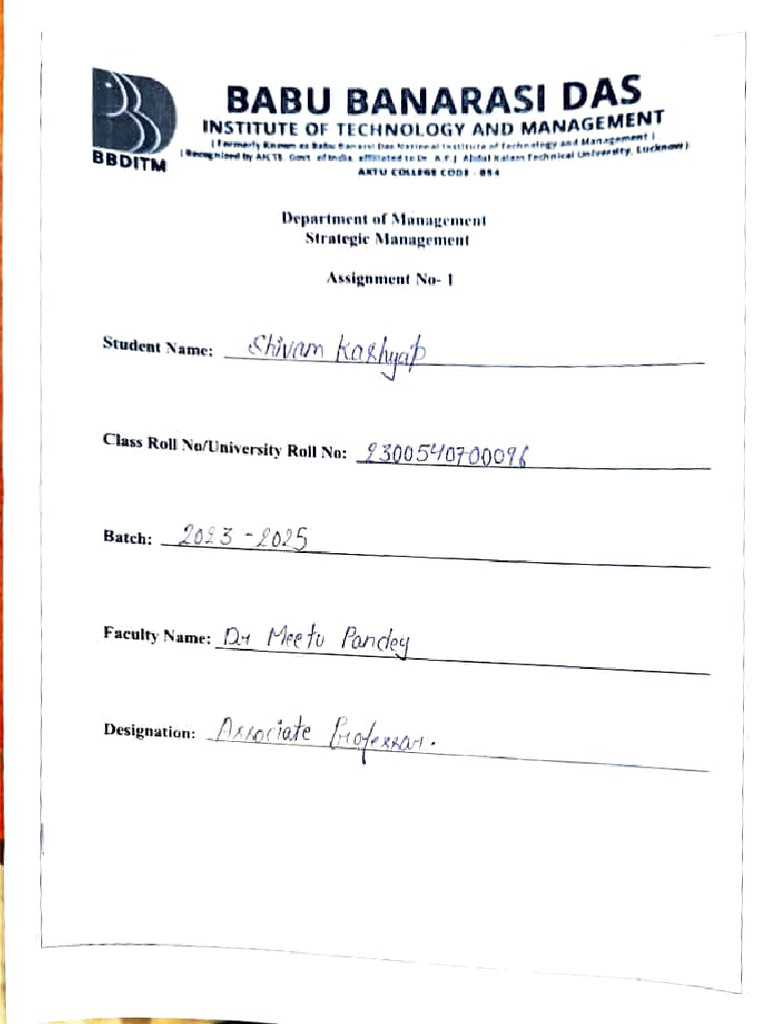 BABU BANARASI DAS
INSTITUTE OF TECHNOLOGY AND MANAGEMENT
( Formerly Known as Babu Banarasi Das National Institute of Technology and Management )
( Recognized by AICTE, Govt. of India, affiliated to Dr. A.P.J. Abdul Kalam Technical University, Lucknow)
AKTU COLLEGE CODE - 054
BBDITM
Department of Management
Strategic Management
Assignment No- 1
Student Name: Shivam Kashyap
Class Roll No/University Roll No: 2300540700096
Batch: 2023 - 2025
Faculty Name: Dr Meetu Pandey
Designation: Associate Professor.